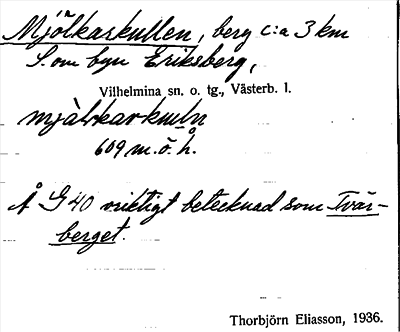 Mjölkarkullen, berg c:a 3 km
S. om byn Eriksberg,
Vilhelmina sn. o. tg., Västerb. l.
609 m. ö. h.
Å G 40 oriktigt betecknad som Tvär-
berget.
Thorbjörn Eliasson, 1936.